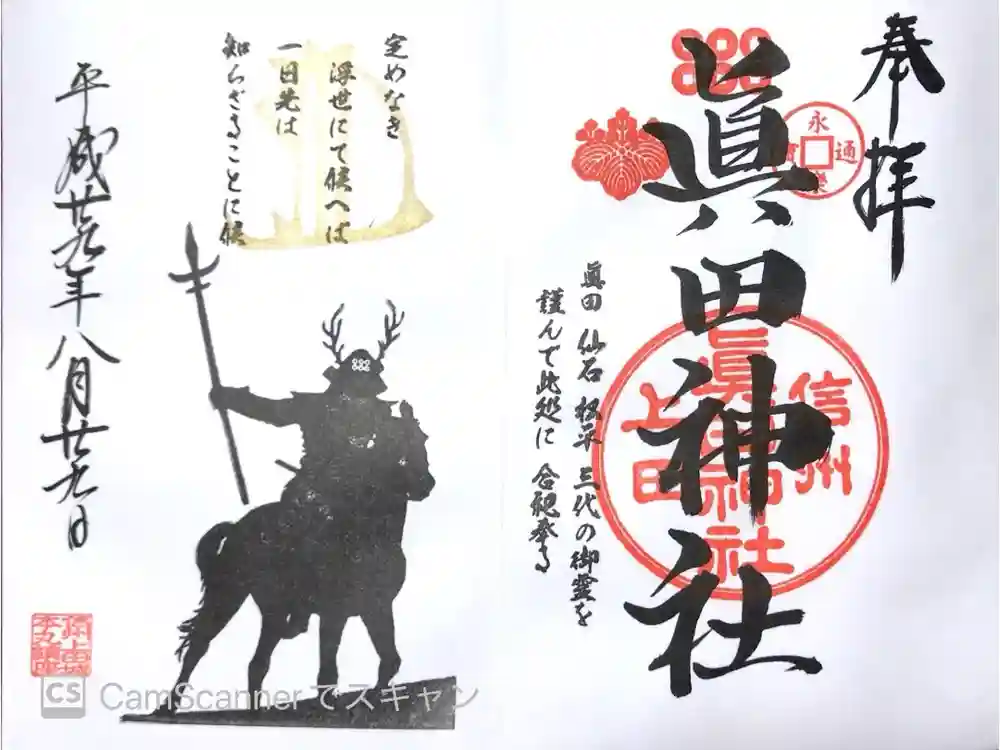 奉拝
永
通
眞田神社
信州
眞田神社
上田
眞田 仙石 松平 三代の御霊を
謹んで此処に 合祀奉る
定めなき
浮世にて候へば
一日先は
知らざることに候
平成廿九年八月廿九日
CS CamScannerでスキャン